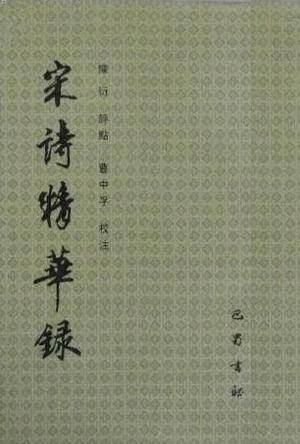 宋诗精華录
陳衍 評點 曹中孚 校注
巴蜀书社